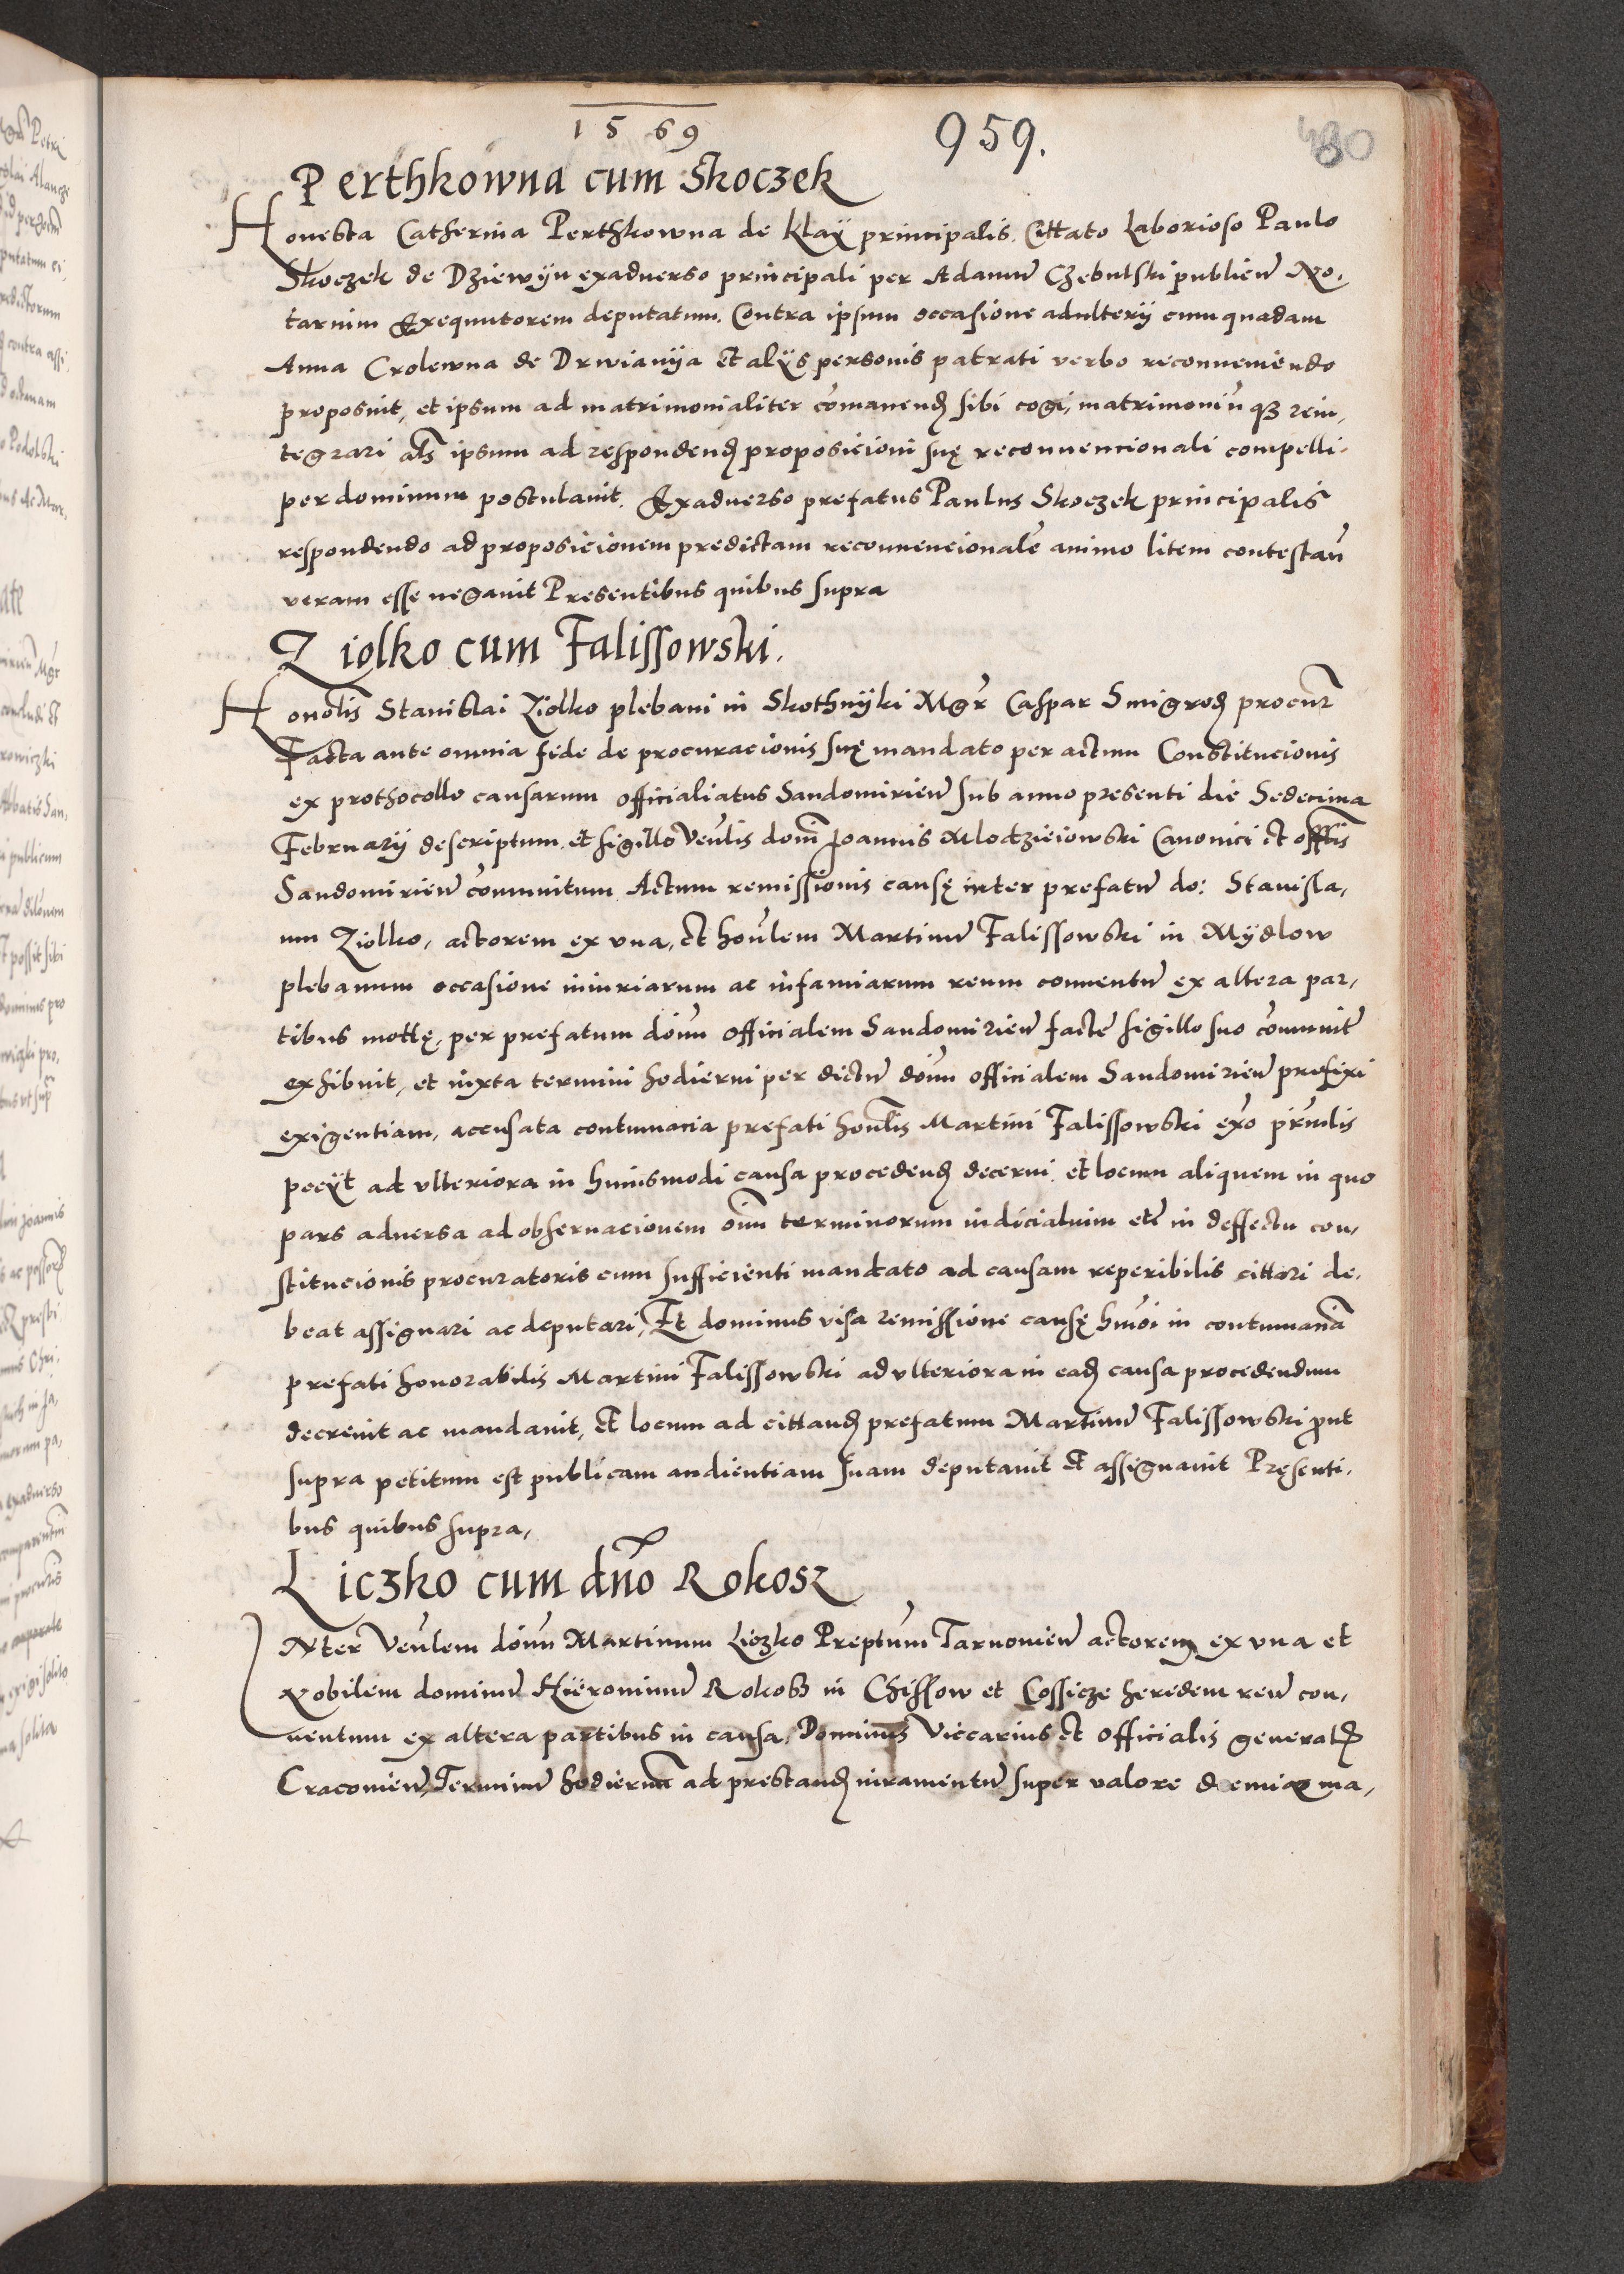 1569
959.
480
Perthkowna cum Skoczek
Honesta Catherina Perthkowna de Klaÿ principalis. Cittato Laborioso Paulo
Skoczek de Dziewÿn exaduerso principali per Adamũ Czebulski publicũ No,
tarium Exequutorem deputatum. Contra ipsum occasione adulterÿ cum quadam
Anna Crolewna de Drwianÿa Et alÿs personis patrati verbo reconueniendo
proposuit, et ipsum ad matrimonialiter cõmanend sibi cogi, matrimoniũ qꝫ rein,
tegrari als ipsum ad respondend proposicioni suę reconuencionali compelli
per dominum postulauit. Exaduerso prefatus Paulus Skoczek principalis
respondendo ad proposicionem predictam reconuencionalẽ animo litem contestañ
veram esse negauit Presentibus quibus supra
Ziolko cum Falissowski.
Honolis Stanislai Ziolko plebani in Skothnÿki Mgr Caspar Smigrod procur
Facta ante omnia fide de procuracionis suę mandato per actum Constitucionis
ex prothocollo causarum officialiatus Sandomirień sub anno presenti die Sedecima
Februarÿ descriptum, et sigillo Venlis domi Joannis Mlodzieiowski Canonici et offlis
Sandomirień cõmunitum Actum remissionis causę inter prefatũ do: Stanisla,
um Ziolko, actorem ex vna, et honlem Martinũ Falissowski in Mÿdlow
plebanum occasione iniuriarum ac infamiarum reum conuentũ ex altera par,
tibus mottę, per prefatum doñm officialem Sandomirień facte sigillo suo cõmunit
exhibuit, et iuxta termini hodierni per dictũ doñm officialem Sandomirień prefixi
exigentiam, accusata contumacia prefati honlis Martini Falissowski exo prinlis
pecÿt ad vlteriora in huiusmodi causa procedend decerni, et locum aliquem in quo
pars aduersa ad obseruacionem oĩm terminorum iudicialuim etĩ in deffectu con,
stitucionis procuratoris cum sufficienti mandato ad causam reperibilis cittari de,
beat assignari ac deputari, Et dominus visa remissione causę hmoi in contumaciã
prefati honorabilis Martini Falissowski ad vlteriora in ead causa procedendum
decreuit ac mandauit, et locum ad cittand prefatum Martinũ Falissowski put
supra petitum est publicam audientiam suam deputauit et assignauit Pręsenti,
bus quibus supra,
Liczko cum dno Rokosz
INter Venlem doñm Martinum Liczko Preptum Tarnouień actorem ex vna et
Nobilem dominũ Hieronimũ Rokosz in Chissow et Cossicze heredem reũ con,
uentum ex altera partibus in causa, Dominus Viccarius et Officialis general
Cracouień, Terminũ hodiernũ ad prestand iuramentũ super valore ma,